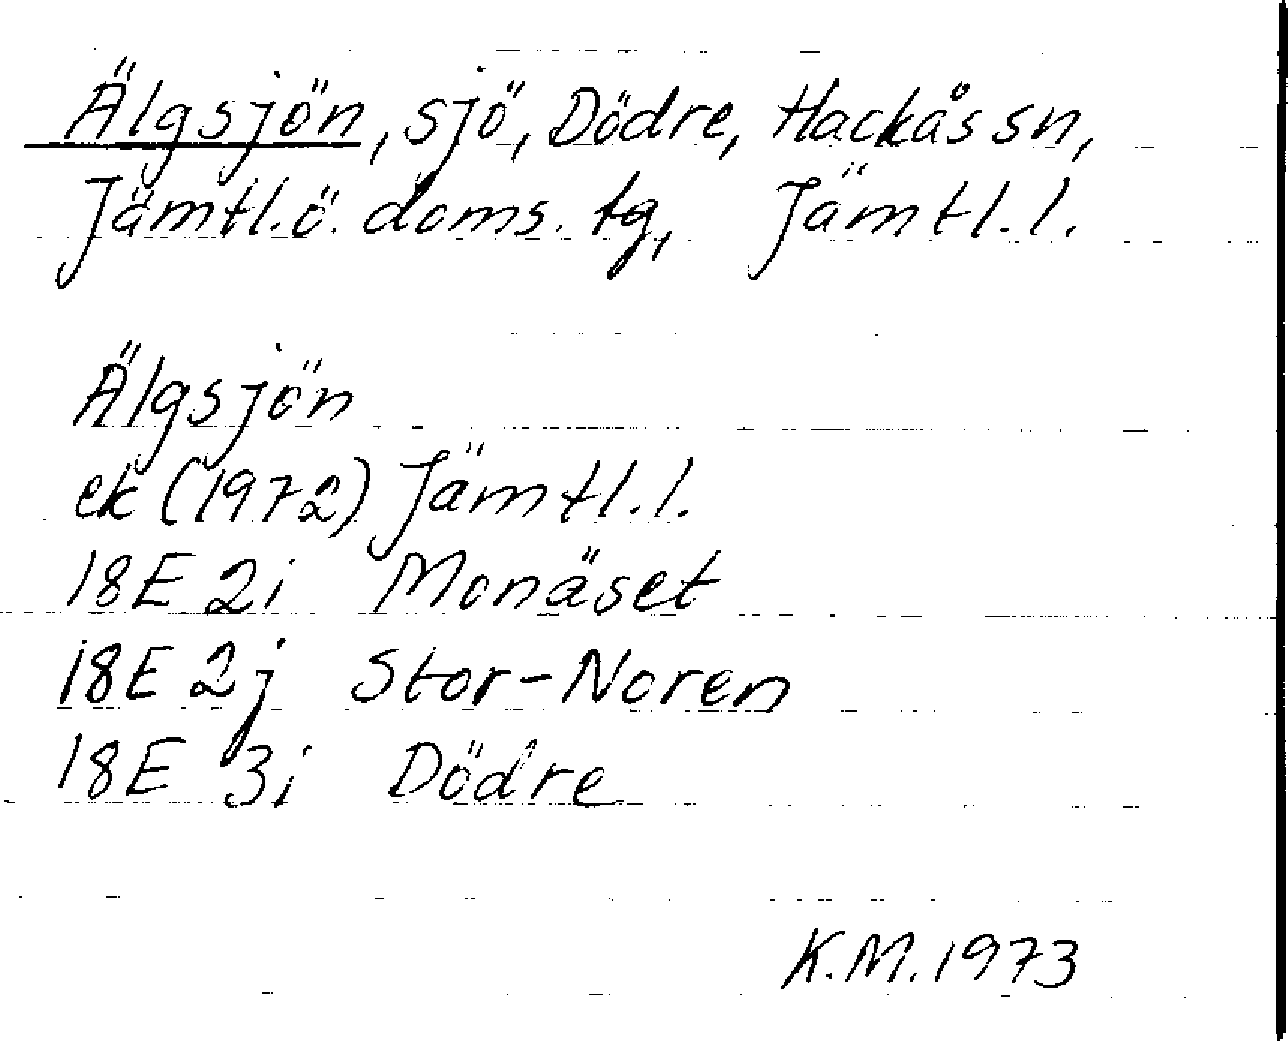 Älgsjön, sjö, Dödre, Hackås sn,
Jämtl.ö. doms. tg, Jämtl.l.
Älgsjön
ek (1972) Jämtl.l.
18E 2i Monäset
18E 2j Stor-Noren
18E 3i Dödre
K.M. 1973